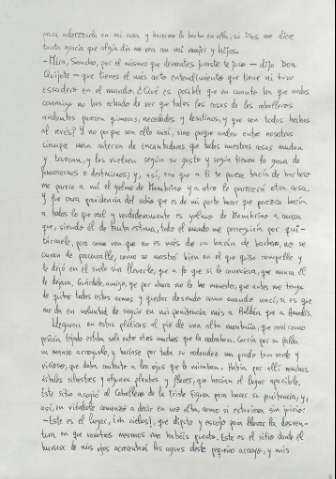 para aderezarla en mi casa y hacerme la barba en ella, si Dios me diere
tanta gracia que algún día me vea con mi mujer y hijos.
- Mira, Sancho, por el mismo que denantes juraste te juro - dijo Don
Quijote - que tienes el más corto entendimiento que tiene ni tuvo
escudero en el mundo. ¿Que es posible que en cuanto ha que andas
conmigo no has echado de ver que todas las cosas de los caballeros
andantes parecen quimeras, necedades y desatinos, y que son todas hechas
al revés? Y no porque sea ello ansí, sino porque andan entre nosotros
siempre una caterva de encantadores que todas nuestras cosas mudan
y truecan, y las vuelven según su gusto y según tienen la gana de
favorecernos o destruirnos; y, así, eso que a ti te parece bacía de barbero
me parece a mí el yelmo de Mambrino y a otro le parecerá otra cosa.
Y fue rara providencia del sabio que es de mi parte hacer que parezca bacía
a todos lo que real y verdaderamente es yelmo de Mambrino, a causa
que, siendo él de tanta estima, todo el mundo me perseguiría por qui-
társele, pero como ven que no es más de un bacín de barbero, no se
curan de procuralle, como se mostró bien en el que quiso rompelle y
le dejó en el suelo sin llevarle, que a fe que si lo conociera, que nunca él
le dejara. Guárdale, amigo, que por ahora no le he menester, que antes me tengo
de quitar todas estas armas y quedar desnudo como cuando nací, si es que
me da en voluntad de seguir en mi penitencia más a Roldán que a Amadís.
Llegaron en estas pláticas al pie de una alta montaña, que casi como
peñón tajado estaba sola entre otras muchas que la rodeaban. Corría por su falda
un manso arroyuelo, y hacíase por toda su redondez un prado tan verde y
vicioso, que daba contento a los ojos que le miraban. Había por allí muchos
árboles silvestres y algunas plantas y flores, que hacían el lugar apacible.
Este sitio escogió el Caballero de la Triste Figura para hacer su penitencia, y,
así, en viéndole comenzó a decir en voz alta, como si estuviera sin juicio:
- Este es el lugar, ¡oh cielos!, que diputo y escojo para llorar la desven-
tura en que vosotros mesmos me habéis puesto. Este es el sitio donde el
humor de mis ojos acrecentará las aguas deste pequeño arroyo, y mis